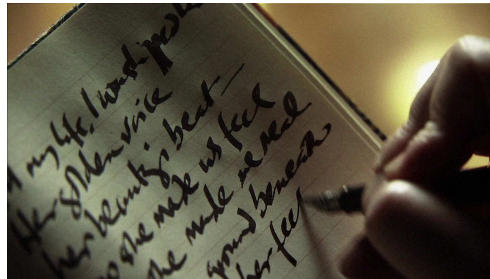 my life, I worshipped
Her golden voice
her beauty's beat—
she made us feel
she made me real
ground beneath
her feet